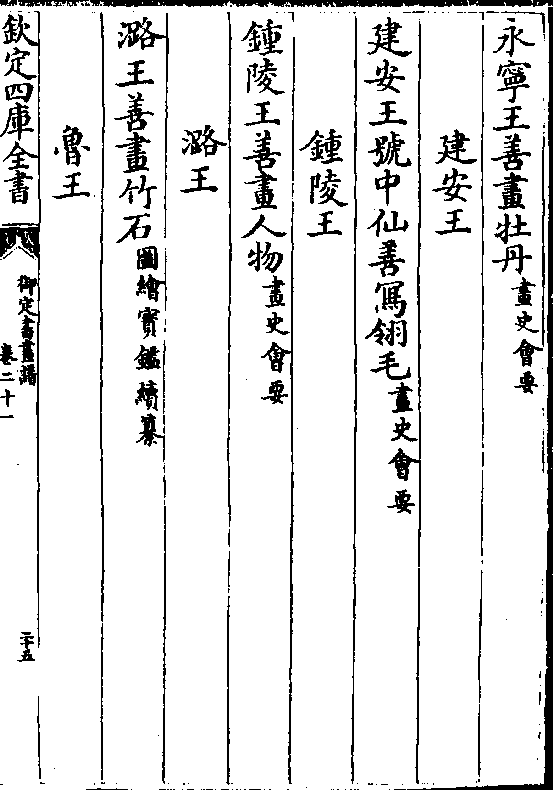 永寧王善畫牡丹畫史會要
建安王
建安王號中仙善寫翎毛畫史會要
鍾陵王
鍾陵王善畫人物畫史會要
潞王
潞王善畫竹石圖繪寳鑑續纂
魯王
欽定四庫全書
御定書畫譜
卷二十一
二十五